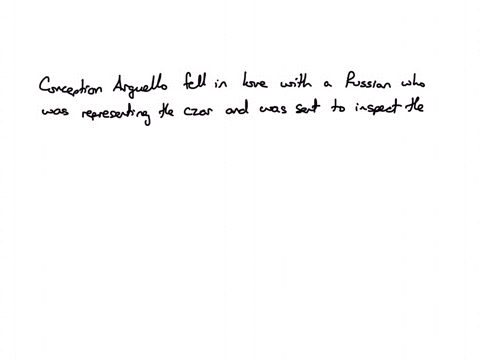 Conception Arguello fell in love with a Russian who
was representing the czar and was sent to inspect the